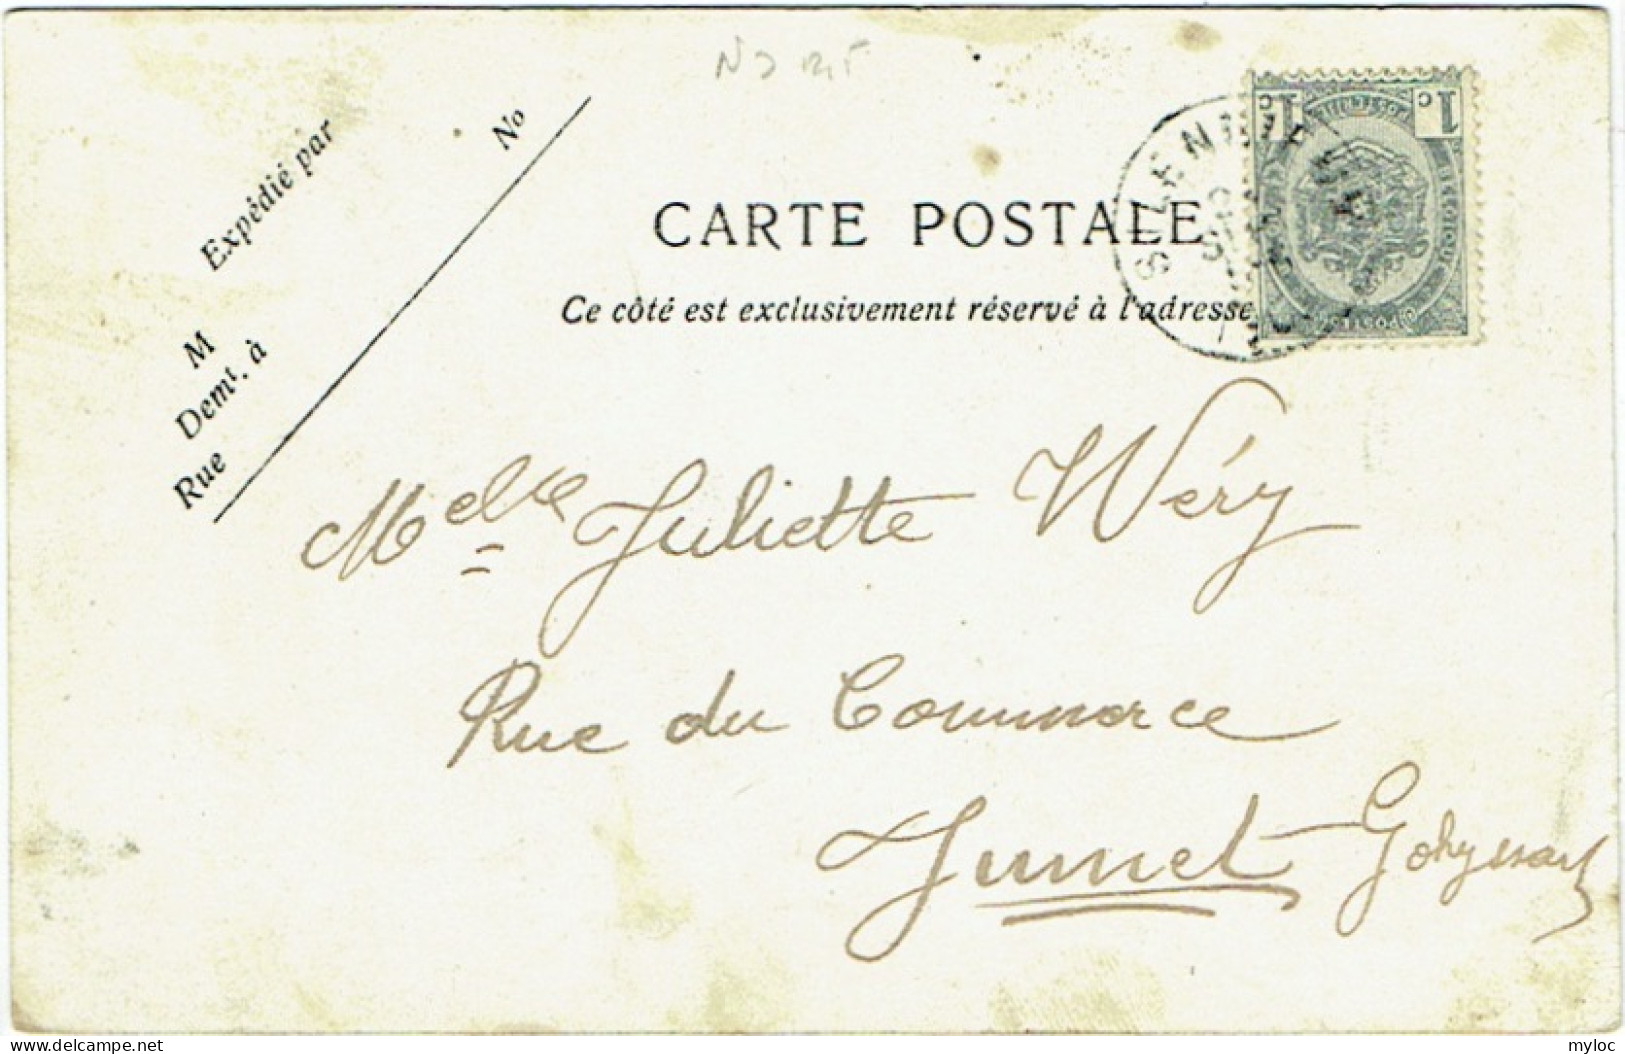 Expédié par
No
M
Demt. à
Rue
CARTE POSTALE
Ce côté est exclusivement réservé à l'adresse
1c 1c
BELGIQUE
POSTES
Melle Juliette Wéry
Rue du Commerce
Jumet Gohyssart
Delcampe.net
myloc